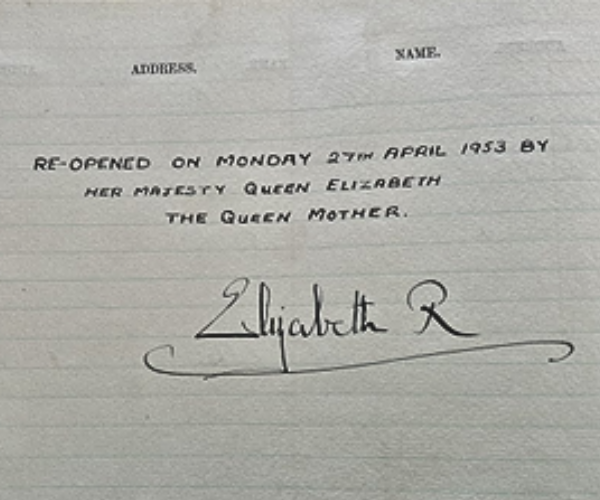 ADDRESS. NAME.
RE-OPENED ON MONDAY 27TH APRIL 1953 BY
HER MAJESTY QUEEN ELIZABETH
THE QUEEN MOTHER.
Elizabeth R